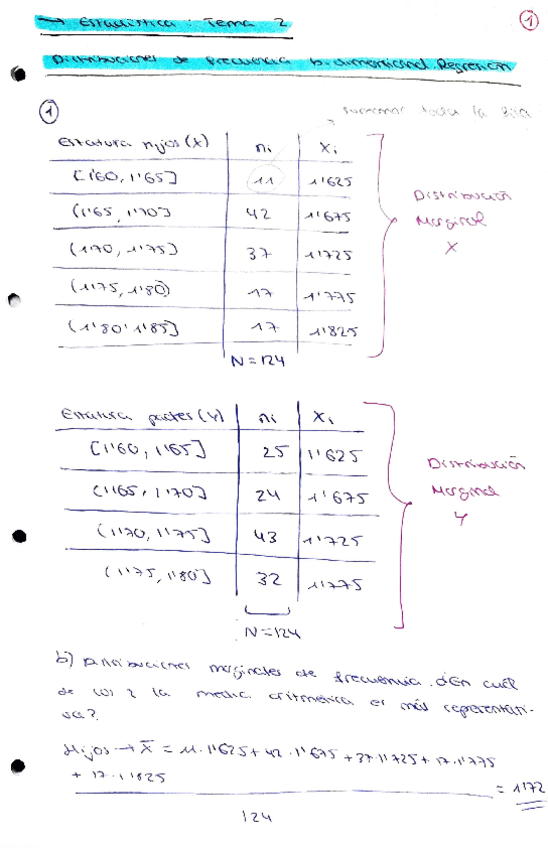 → Estadística : Tema 2
1
Distribuciones de frecuencia bidimensional. Regresión
1
sumamos toda la fila
Estatura hijos (X) ni Xi
[1'60, 1'65] 11 1'625
(1'65, 1'70] 42 1'675
(1'70, 1'75] 37 1'725
(1'75, 1'80] 17 1'775
(1'80' 1'85] 17 1'825
N = 124
Distribución
Marginal
X
Estatura padres (Y) ni Xi
[1'60, 1'65] 25 1'625
(1'65, 1'70] 24 1'675
(1'70, 1'75] 43 1'725
(1'75, 1'80] 32 1'775
N = 124
Distribución
Marginal
Y
b) Distribuciones marginales de frecuencia. ¿En cuál
de las 2 la media aritmética es más representati-
va?
Hijos → X̄ = 11·1'625 + 42·1'675 + 37·1'725 + 17·1'775
+ 17·1'825
= 1'72
124